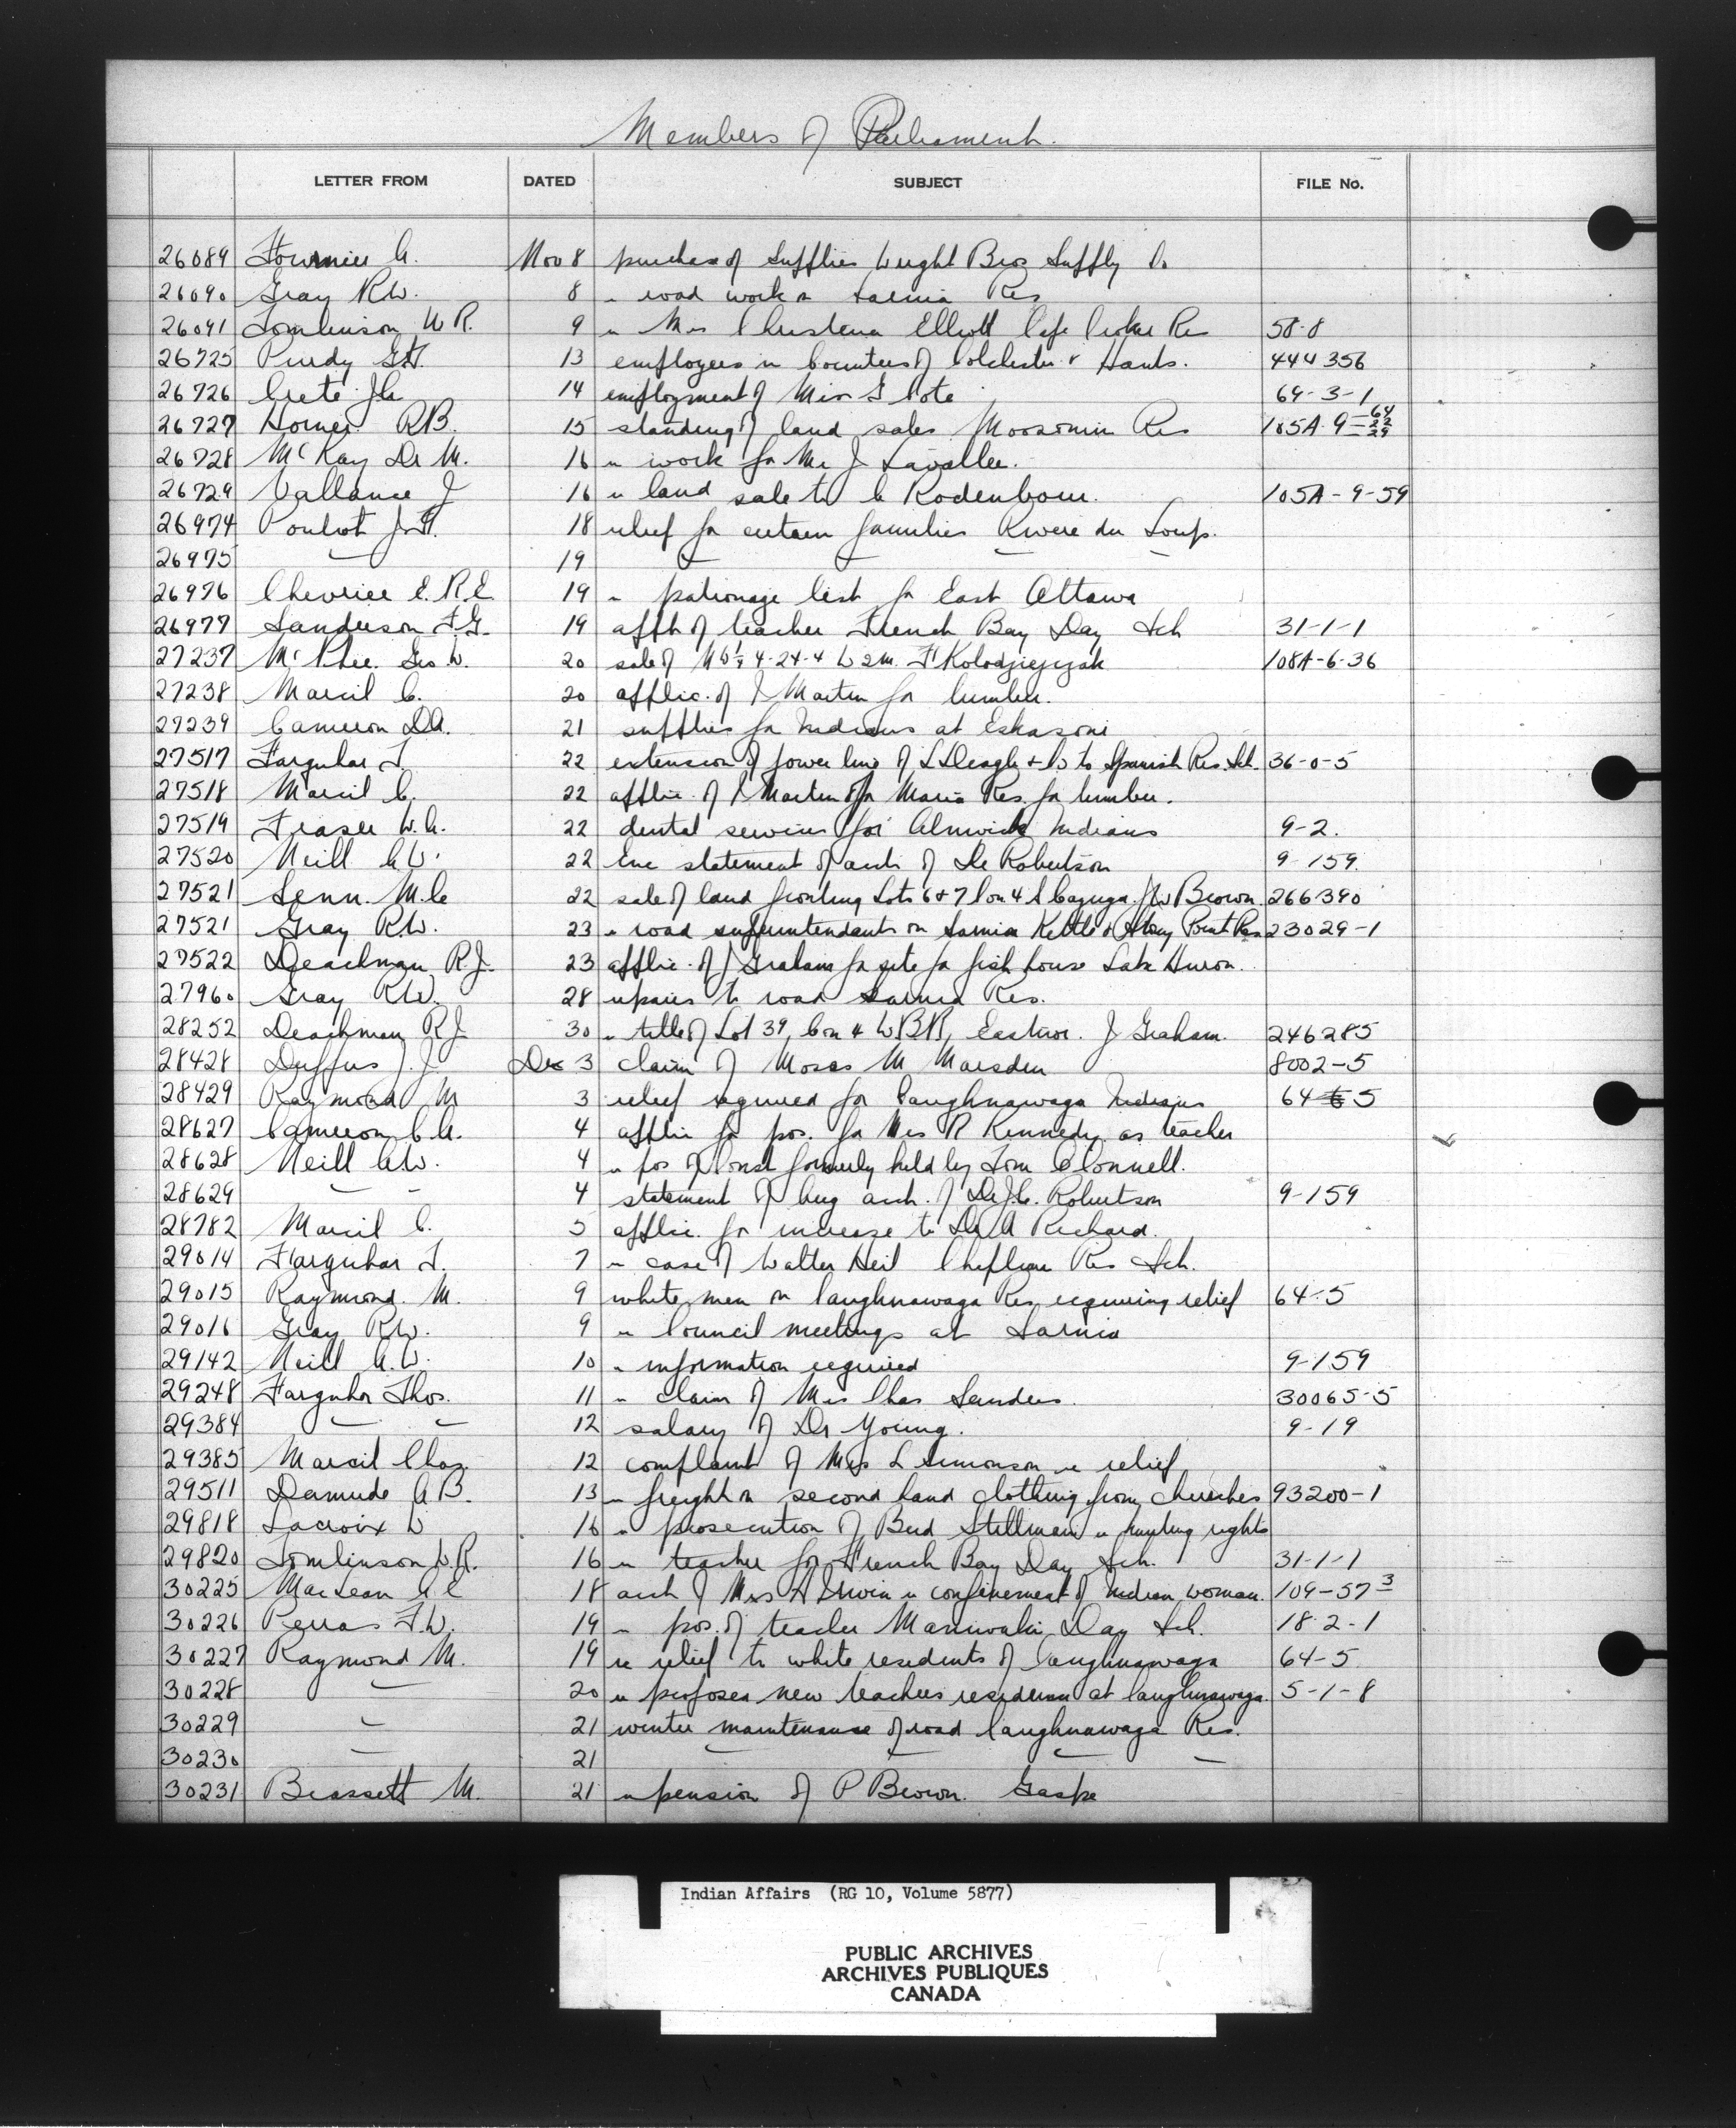 Members of Parliament.
LETTER FROM DATED SUBJECT FILE No.
26089 Fournier A. Nov 8 purchase of supplies Wright Bros Supply Co
26090 Gray R.W. 8 re road work on Sarnia Res
26091 Tomlinson W R. 9 re Mrs Christena Elliott Cape Croker Res 58-8
26725 Purdy G.T. 13 employees in Counties of Colchester & Hants. 444356
26726 Crete J.A. 14 employment of Miss G Cote 64-3-1
26727 Horner R.B. 15 standing of land sales Moosomin Res 105A-9-
26728 McKay Dr M. 16 re work for Mr J Lavallee.
26729 Vallance J 16 re land sale to C Rodenbour. 105A-9-59
26974 Pouliot J.F. 18 relief for certain families Riviere du Loup.
26975 " 19 " " " "
26976 Chevrier E.R.E. 19 re patronage list for East Ottawa
26977 Sanderson F.G. 19 appt of teacher French Bay Day Sch 31-1-1
27237 McPhee Geo W. 20 sale of N W¼ 4-24-4 W2M. F Kolodziejzak 108A-6-36
27238 Marcil C. 20 applic. of J Martin for lumber.
27239 Cameron D.A. 21 supplies for Indians at Eskasoni
27517 Farquhar T. 22 extension of power line of L Deagle & Co to Spanish Res. Sch. 36-0-5
27518 Marcil C. 22 applic. of J Martin of Maria Res. for lumber.
27519 Fraser W.A. 22 dental services for Alnwick Indians 9-2.
27520 Neill A.W. 22 Enc statement of acct of Dr Robertson 9-159.
27521 Senn. M.C 22 sale of land fronting Lots 6 & 7 Con 4 S Cayuga. J W Brown. 266390
27521 Gray R.W. 23 re road superintendents on Sarnia Kettle & Stony Point Res 23029-1
27522 Deachman R.J. 23 applic. of J Graham for site for fish house Lake Huron.
27960 Gray R.W. 28 repairs to road Sarnia Res.
28252 Deachman R.J. 30 re title of Lot 39, Con 4 W B R, Eastnor. J Graham. 246285
28428 Duffus J.J. Dec 3 claim of Moses M Marsden 8002-5
28429 Raymond M 3 relief required for Caughnawaga Indians 64-5
28627 Cameron C.A. 4 applic for pos. for Mrs R Kennedy as teacher
28628 Neill A.W. 4 re pos of Const formerly held by Tom O'Connell.
28629 " " 4 statement of Aug acct. of Dr J.C. Robertson 9-159
28782 Marcil C. 5 applic. for increase to Dr A Richard.
29014 Farquhar T. 7 re case of Walter Neil Chapleau Res Sch.
29015 Raymond. M. 9 white men on Caughnawaga Res requiring relief 64-5
29016 Gray R.W. 9 re Council meetings at Sarnia
29142 Neill A.W. 10 re information required 9-159
29248 Farquhar Thos. 11 re claim of Mrs Chas Sanders. 30065-5
29384 " " 12 salary of Dr Young. 9-19
29385 Marcil Chas. 12 complaint of Mrs L Simonson re relief
29511 Damude A B. 13 re freight on second hand clothing from churches 93200-1
29818 Lacroix W 16 re prosecution of Bud Stillman re hunting rights
29820 Tomlinson W.R. 16 re teacher for French Bay Day Sch. 31-1-1
30225 MacLean A E 18 acct of Mrs A Irwin re confinement of Indian woman. 109-57 3
30226 Perras F.W. 19 re pos. of teacher Maniwaki Day Sch. 18-2-1
30227 Raymond M. 19 re relief to white residents of Caughnawaga 64-5
30228 " 20 re proposed new teachers residence at Caughnawaga. 5-1-8
30229 " 21 winter maintenance of road Caughnawaga Res.
30230 " 21 " " " "
30231 Brassett M. 21 re pension of P Brown. Gaspe
Indian Affairs (RG 10, Volume 5877)
PUBLIC ARCHIVES
ARCHIVES PUBLIQUES
CANADA